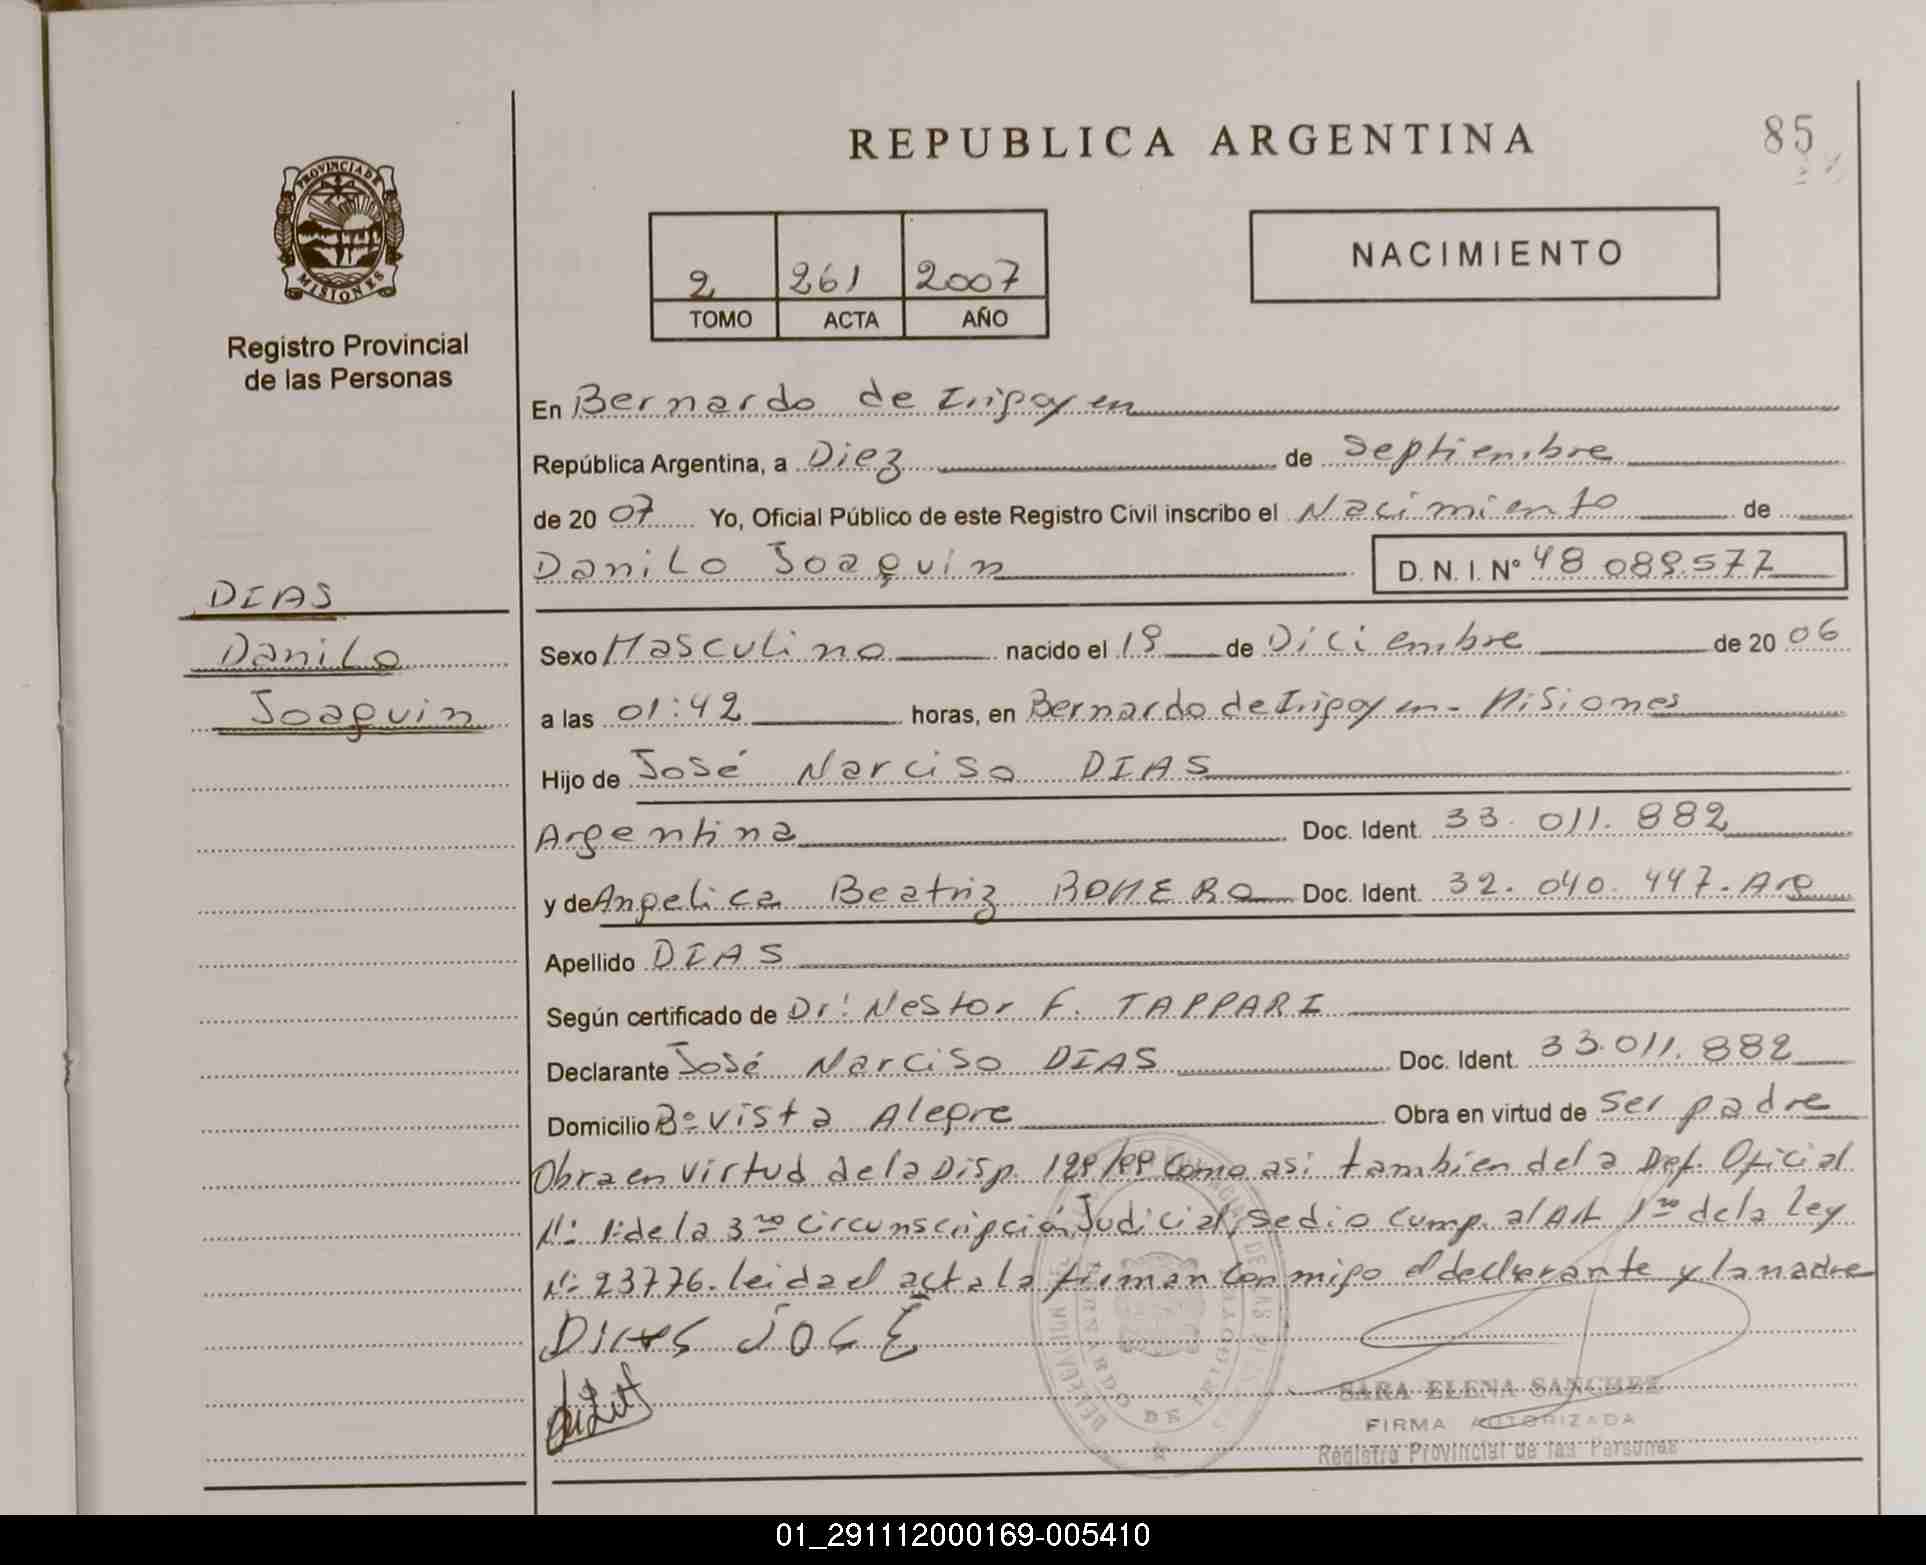 REPUBLICA ARGENTINA
85
PROVINCIA DE
MISIONES
Registro Provincial
de las Personas
2 261 2007
TOMO ACTA AÑO
NACIMIENTO
En Bernardo de Irigoyen
República Argentina, a Diez de Septiembre
de 20 07 Yo, Oficial Público de este Registro Civil inscribo el Nacimiento de
Danilo Joaquin D.N.I. Nº 48 089.577
DIAS
Danilo
Joaquin
Sexo Masculino nacido el 19 de Diciembre de 20 06
a las 01:42 horas, en Bernardo de Irigoyen - Misiones
Hijo de José Narciso DIAS
Argentina Doc. Ident. 33. 011. 882
y de Angelica Beatriz ROMERO Doc. Ident. 32. 040. 447. Arg
Apellido DIAS
Según certificado de Dr: Nestor F. TAPPARI
Declarante José Narciso DIAS Doc. Ident. 33.011.882
Domicilio Bº Vista Alegre Obra en virtud de ser padre
Obra en virtud de la Disp. como asi tambien de la Def. Oficial
Nº 1 de la 3ra circunscripción Judicial, se dio cump. al Art 1ro de la ley
Nº 23776. leida el acta la firman conmigo el declarante y la madre
DIAS JOSE
SARA ELENA SANCHEZ
FIRMA AUTORIZADA
Registro Provincial de las Personas
01_291112000169-005410